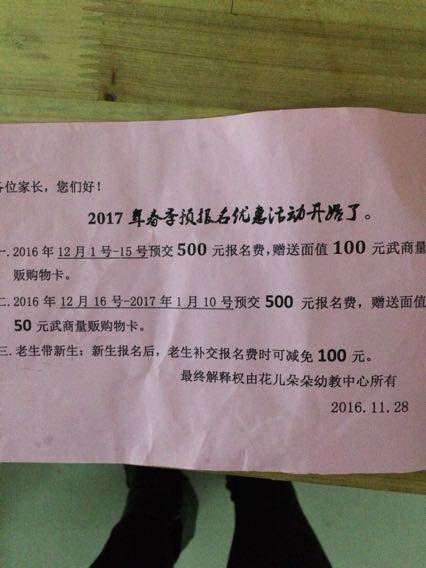 各位家长，您们好！
2017 年春季预报名优惠活动开始了。
一.2016 年 12 月 1 号-15 号预交 500 元报名费，赠送面值 100 元武商量
贩购物卡。
二.2016 年 12 月 16 号-2017 年 1 月 10 号预交 500 元报名费，赠送面值
50 元武商量贩购物卡。
三.老生带新生：新生报名后，老生补交报名费时可减免 100 元。
最终解释权由花儿朵朵幼教中心所有
2016.11.28